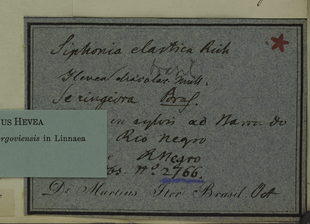 Siphonia elastica Rich
Hevea discolor Müll.
Seringeira Bras.
in sylvis ad Barra do
Rio negro
R Negro
Obs. No. 2766.
De Martius Iter Brasil. Oct
US HEVEA
ergoviensis in Linnaea